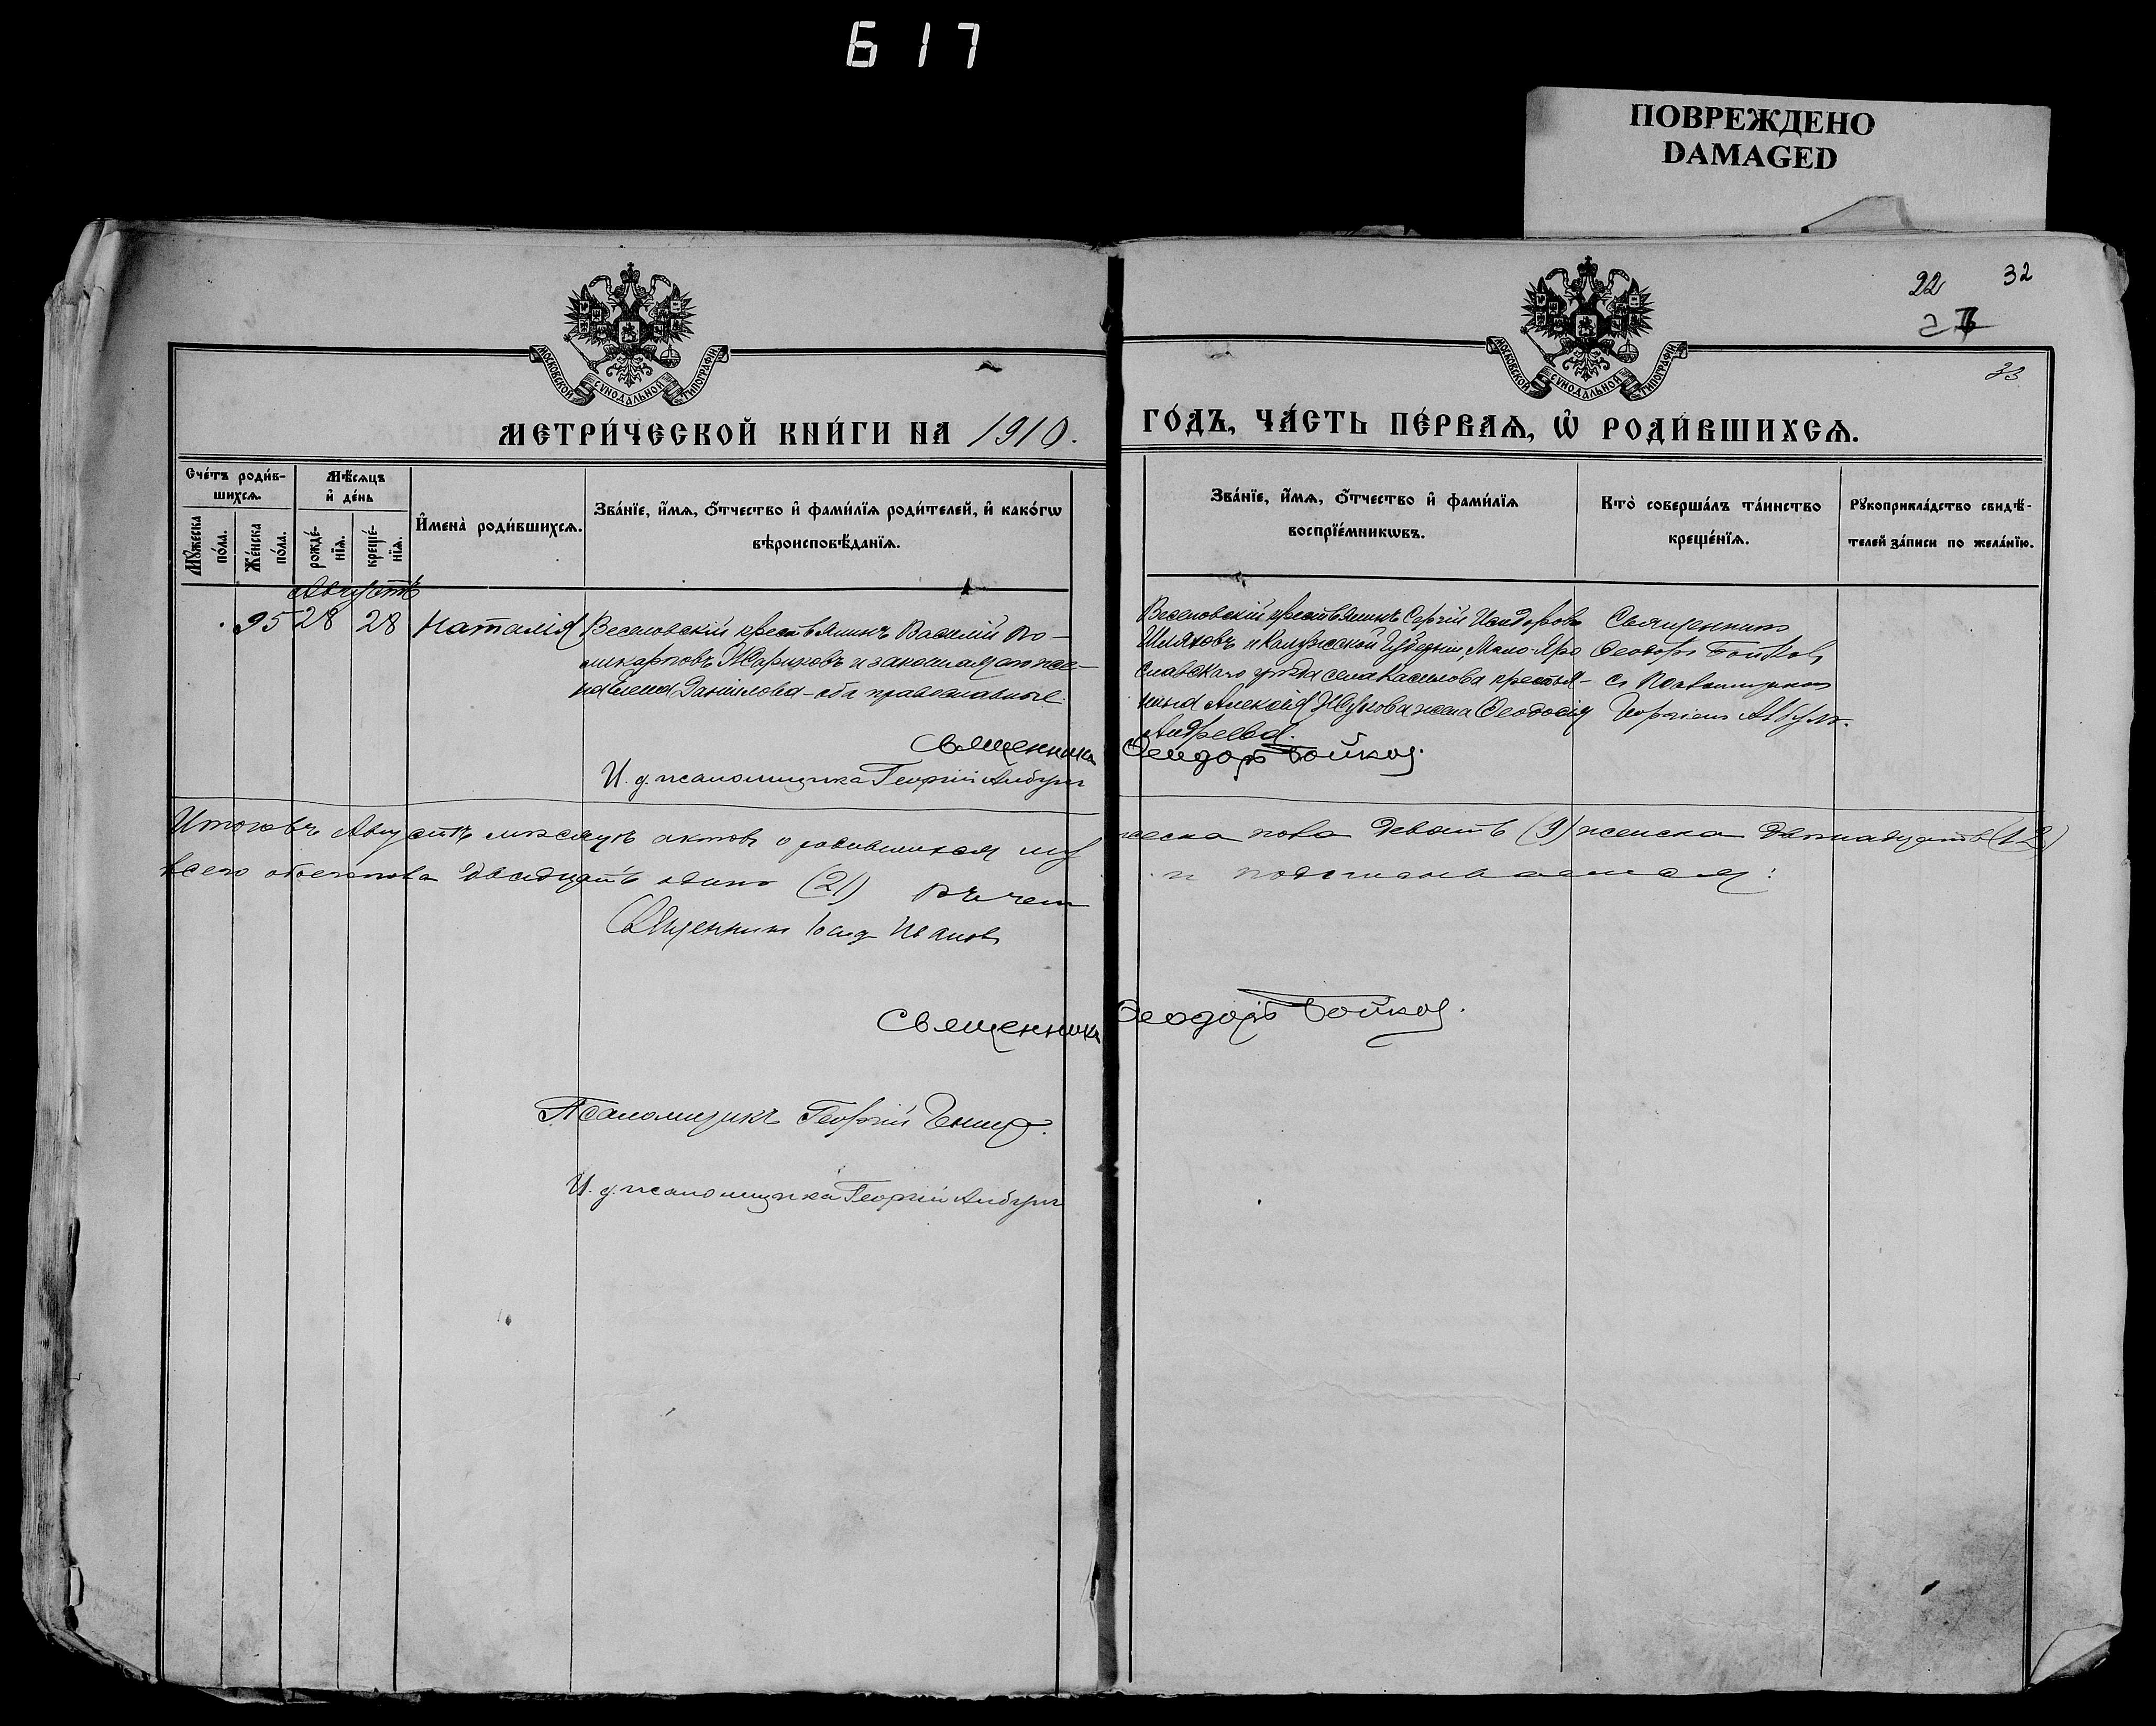 617
ПОВРЕЖДЕНО
DAMAGED
22 32
33
МОСКОВСКОЙ СѴНОДАЛЬНОЙ ТИПОГРАФІИ
МОСКОВСКОЙ СѴНОДАЛЬНОЙ ТИПОГРАФІИ
МЕТРИ́ЧЕСКОЙ КНИ́ГИ НА 1910. ГО́ДЪ, ЧА́СТЬ ПЕ́РВАѦ, Ѡ҆ РОДИ́ВШИХСѦ.
Сче́тъ роди́в-
шихсѧ.
Мѣ́сѧцъ
и҆ де́нь
Мꙋ́жеска
по́ла.
Же́нска
по́ла.
рожде́-
нїѧ.
креще́-
нїѧ.
И҆мена̀ роди́вшихсѧ.
Зва́нїе, и҆́мѧ, ѻ҆́тчество и҆ фами́лїѧ роди́телей, и҆ како́гѡ
вѣроисповѣ́данїѧ.
Зва́нїе, и҆́мѧ, ѻ҆́тчество и҆ фами́лїѧ
воспрїе́мникѡвъ.
Кто̀ соверша́лъ та́инство
креще́нїѧ.
Рꙋкоприкла́дство свидѣ́-
телей за́писи по жела́нїю.
Августъ
95 28 28 Наталія
Веселовскій крестьянинъ Василій По-
ликарповъ Жариковъ и законная его же-
на Данилова - оба православные.
Веселовскій крестьянинъ Сергій Исидоровъ
Шляховъ и Калужской губерніи, Мало-Яро
славскаго уѣзда села крестья-
нина Алексѣя Жукова жена Ѳеодосія
Андреева.
Священникъ
Ѳеодоръ Бойковъ
съ Псаломщикомъ
Георгіемъ
Священникъ Ѳеодоръ Бойковъ.
И. д. псаломщика Георгій
Итого въ Августѣ мѣсяцѣ актовъ о родившихся муж
жеска пола девять (9) женска двѣнадцать (12)
всего обоего пола двадцать одинъ (21) въ чем
и подписываемся:
Священникъ Іоаннъ Ивановъ
Священникъ Ѳеодоръ Бойковъ.
Псаломщикъ Георгій
И. д. псаломщика Георгій